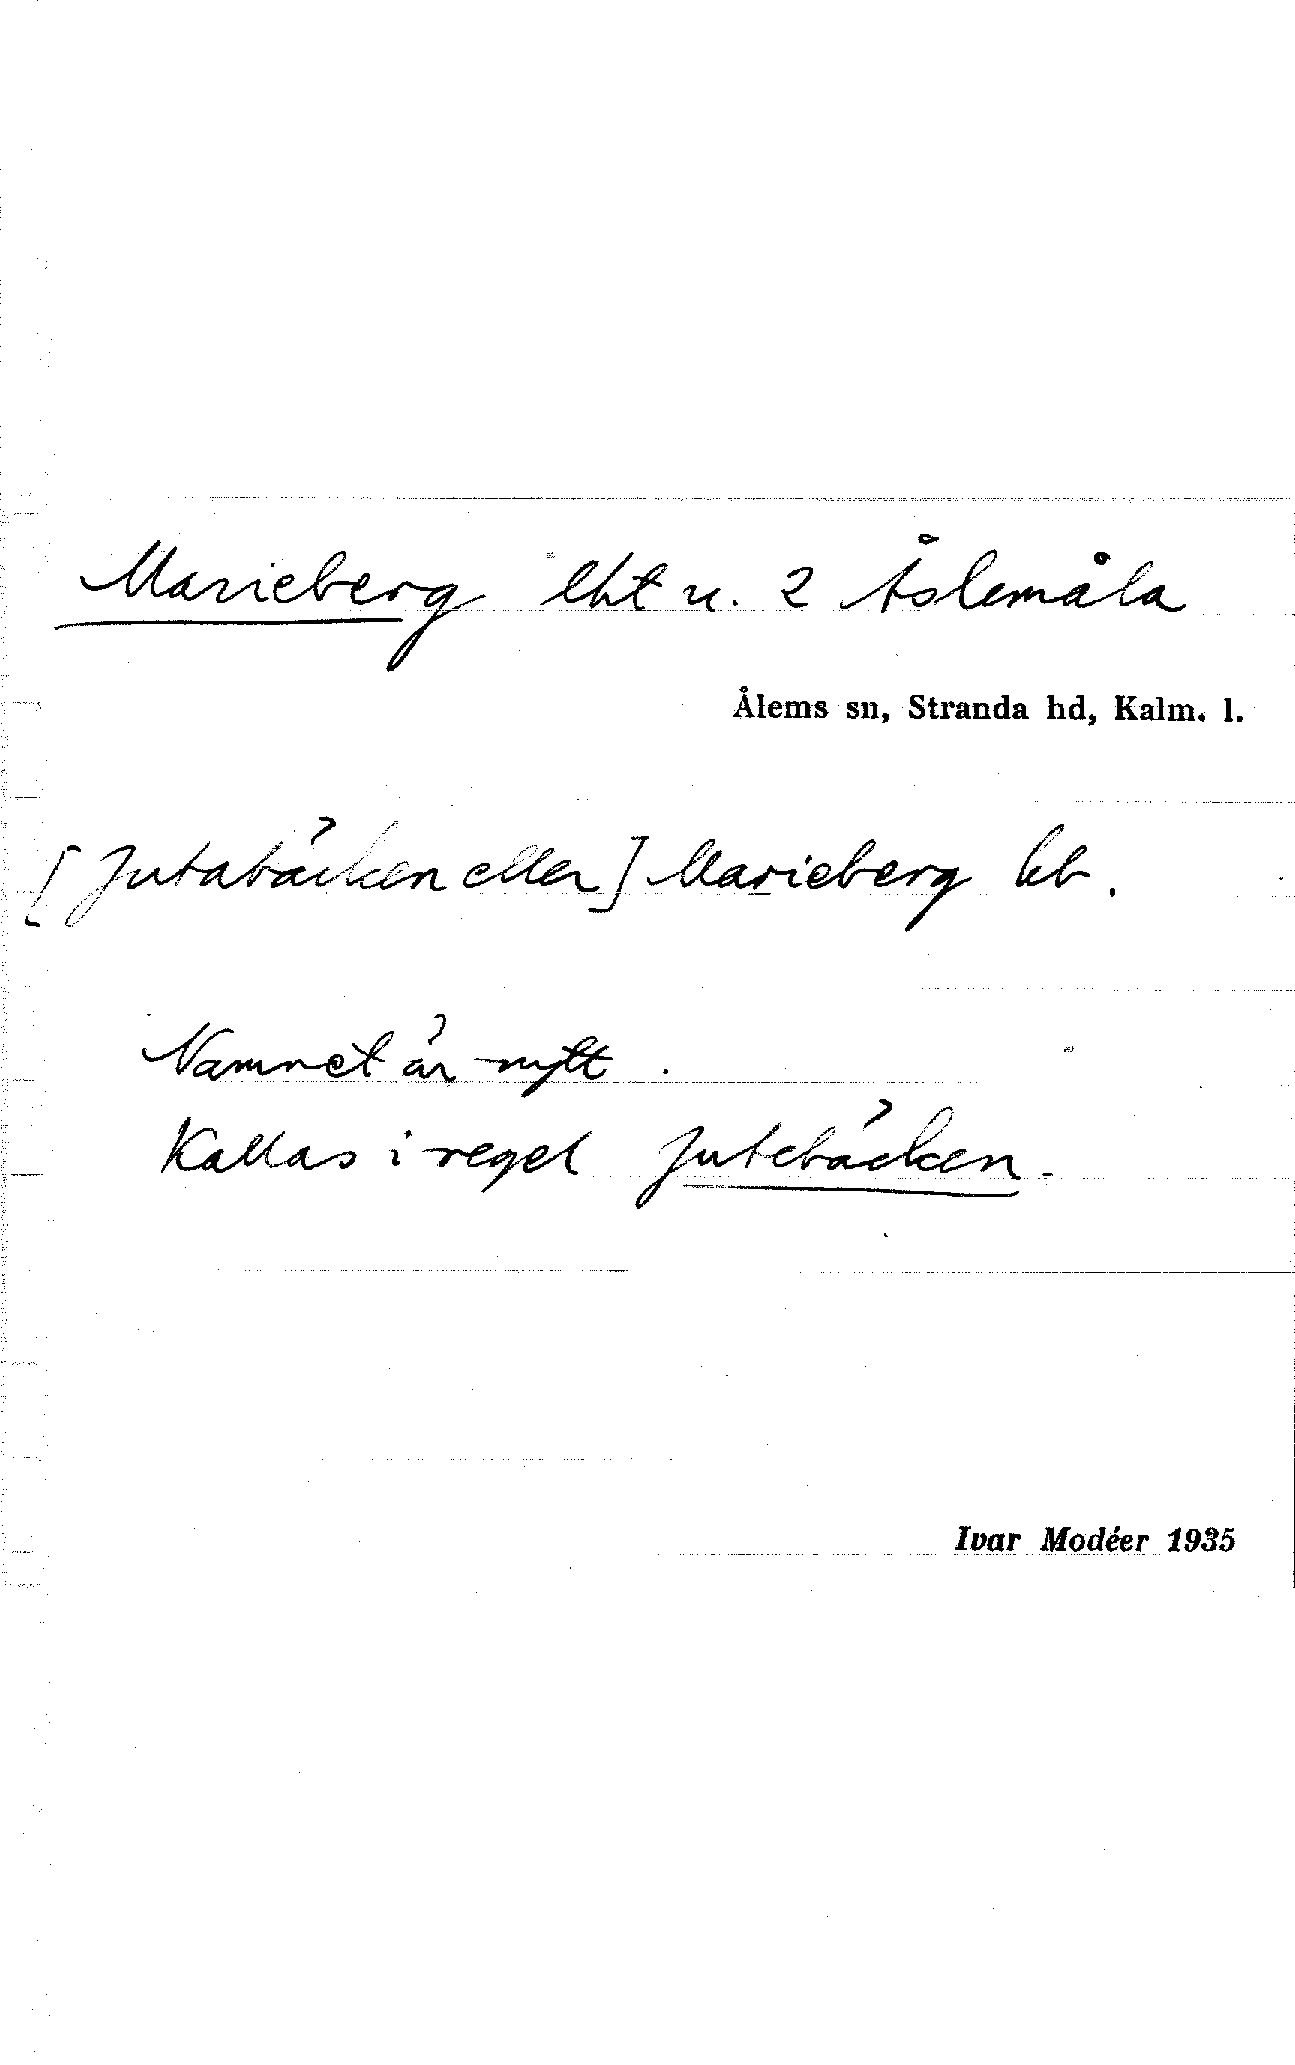 Marieberg lht u. 2 Åslemåla
Ålems sn, Stranda hd, Kalm. l.
[Jutabäcken eller] Marieberg kb.
Namnet är nytt.
Kallas i regel Jutebäcken.
Ivar Modéer 1935